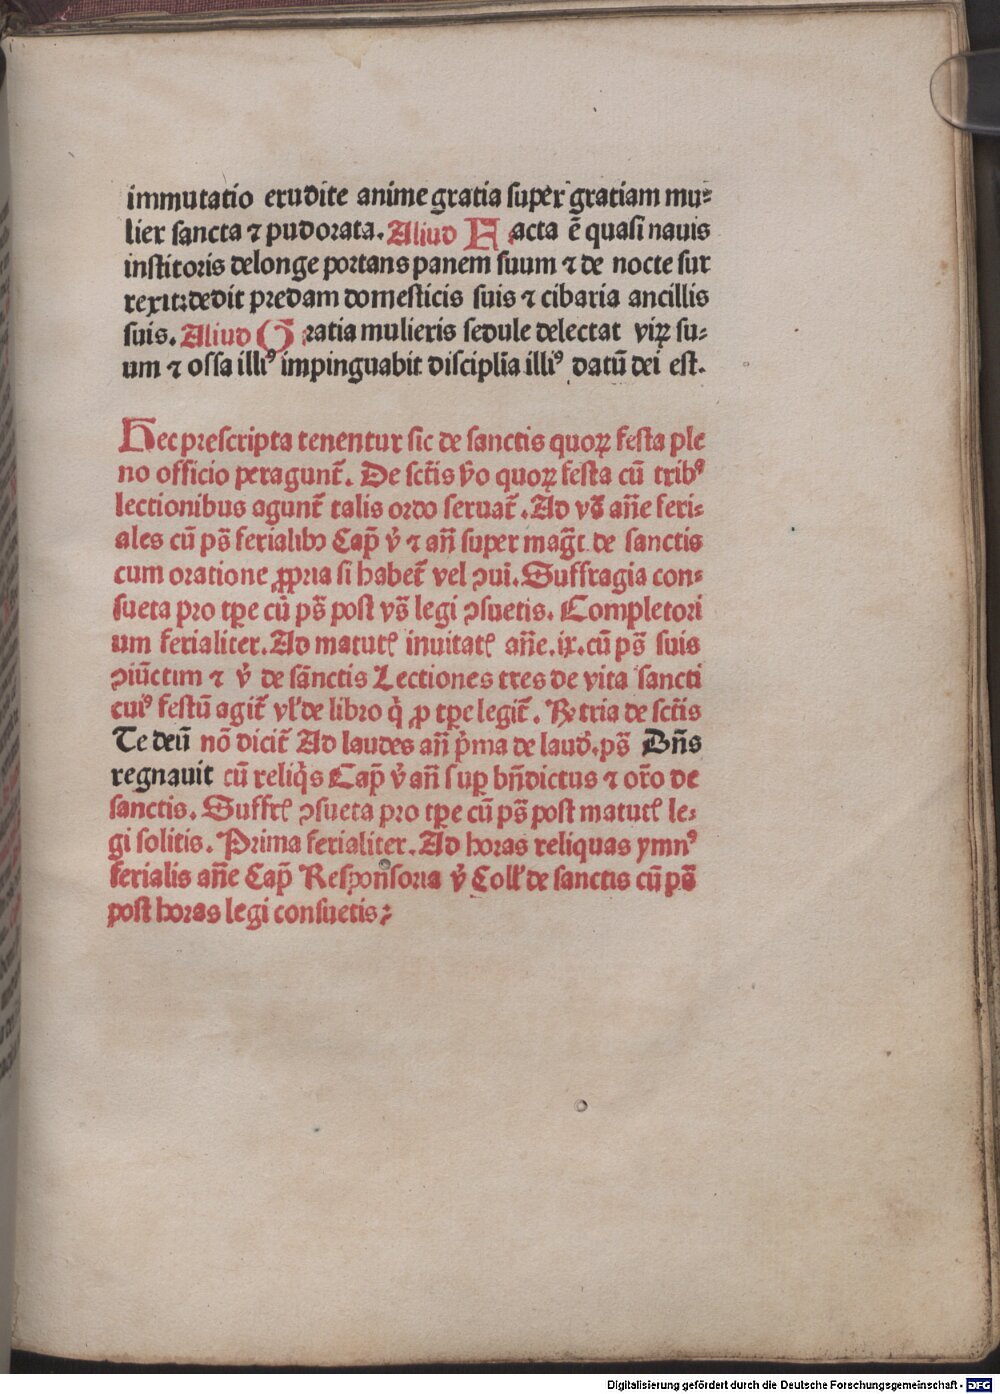 immutatio erudite anime gratia super gratiam mu⸗
lier sancta ⁊ pudorata. Aliud Facta ē quasi nauis
institoris delonge portans panem suum ⁊ de nocte sur
rexit:dedit predam domesticis suis ⁊ cibaria ancillis
suis. Aliud Gratia mulieris sedule delectat virꝝ su⸗
um ⁊ ossa illiꝰ impinguabit disciplia illiꝰ datū dei est.
Hec prescripta tenentur sic de sanctis quoꝝ festa ple
no officio peragunt̄. De sct̄is v̄o quoꝝ festa cū tribꝰ
lectionibus agunt̄ talis ordo seruat̄. Ad vs̄ an̄e feri⸗
ales cū ps̄ ferialibꝫ Cap̄ v̄ ⁊ an̄ super maḡt de sanctis
cum oratione ꝓpria si habet̄ vel ꝯui. Suffragia con⸗
sueta pro tp̄e cū ps̄ post vs̄ legi ꝯsuetis. Completori
um ferialiter. Ad matutꝭ inuitatꝭ an̄e.ix.cū ps̄ suis
ꝯiūctim ⁊ v̄ de sāctis Lectiones tres de vita sancti
cuiꝰ festū agit̄ vl' de libro q̇ ꝓ tp̄e legit̄. ℞ tria de sct̄is
Te deū nō dicit̄ Ad laudes an̄ p̄ma de laud̄. ps̄ Dn̄s
regnauit cū reliq̇s Cap̄ v̄ an̄ sup bn̄dictus ⁊ or̄o de
sanctis. Suffrꝭ ꝯsueta pro tp̄e cū ps̄ post matutꝭ le⸗
gi solitis. Prima ferialiter. Ad horas reliquas ymnꝰ
ferialis an̄e Cap̄ Responsoria v̄ Coll' de sanctis cū ps̄
post horas legi consuetis;
Digitalisierung gefördert durch die Deutsche Forschungsgemeinschaft - DFG